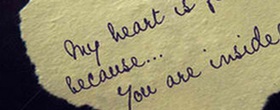 My heart is
because...
You are inside